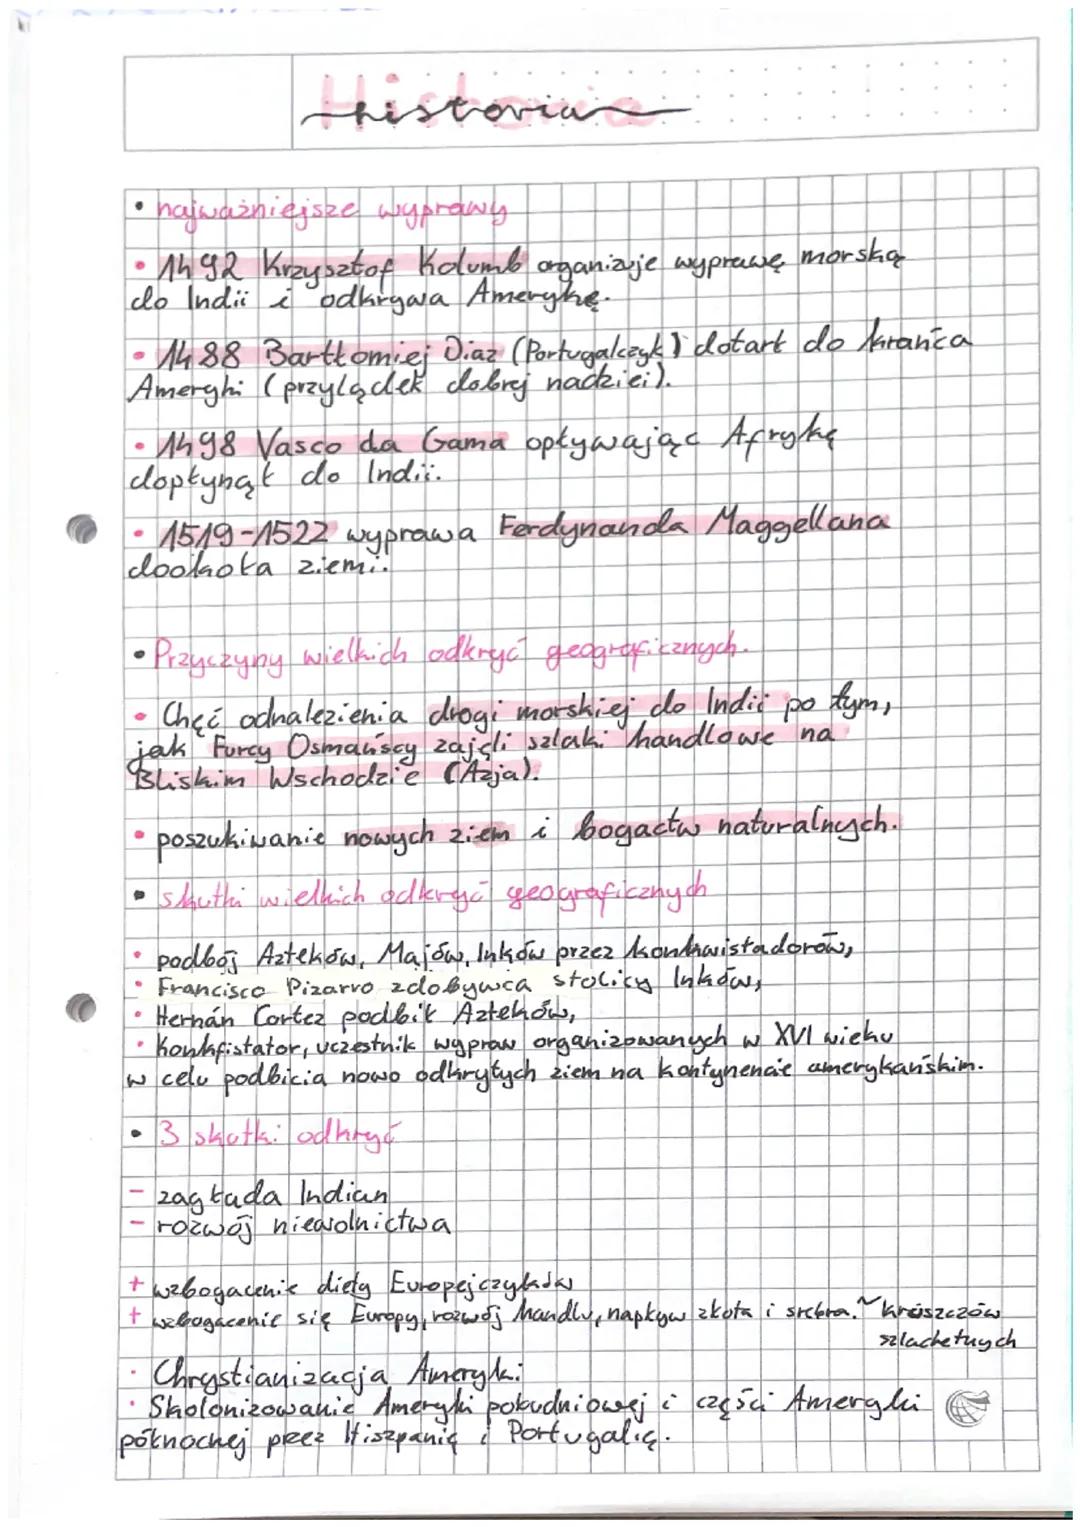 Historia
historia
• najważniejsze wyprawy
• 1492 Krzysztof Kolumb organizuje wyprawę morską
do Indii i odkrywa Amerykę.
• 1488 Barttomiej Diaz (Portugalczyk) dotarł do krańca
Ameryki (przylądek dobrej nadziei).
• 1498 Vasco da Gama opływając Afrykę
dopłynął do Indii.
• 1519-1522 wyprawa Ferdynanda Maggellana
dookoła ziemi.
• Przyczyny wielkich odkryć geograficznych.
• Chęć odnalezienia drogi morskiej do Indii po tym,
jak Turcy Osmańscy zajęli szlaki handlowe na
Bliskim Wschodzie (Azja).
• poszukiwanie nowych ziem i bogactw naturalnych.
• skutki wielkich odkryć geograficznych
• podbój Azteków, Majów, Inków przez konkwistadorów,
• Francisco Pizarro zdobywca stolicy Inków,
• Hernán Cortez podbił Azteków,
• Konkfistator, uczestnik wypraw organizowanych w XVI wieku
w celu podbicia nowo odkrytych ziem na kontynencie amerykańskim.
• 3 skutki odkryć
- zagłada Indian
- rozwój niewolnictwa
+ wzbogacenie diety Europejczyków
+ wzbogacenie się Europy, rozwój handlu, napływ złota i srebra. ~ kruszczów
szlachetnych
• Chrystianizacja Ameryki
• Skolonizowanie Ameryki południowej i części Ameryki
północnej przez Hiszpanię i Portugalię.